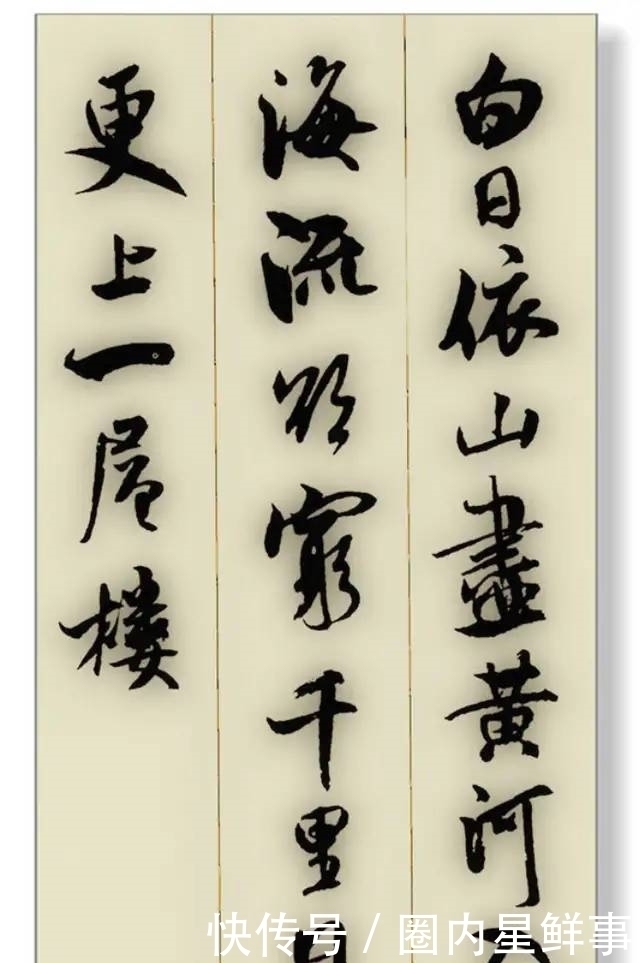 白日依山盡黄河
海流欲窮千里目
更上一層樓
快传号 / 圈内星鲜事